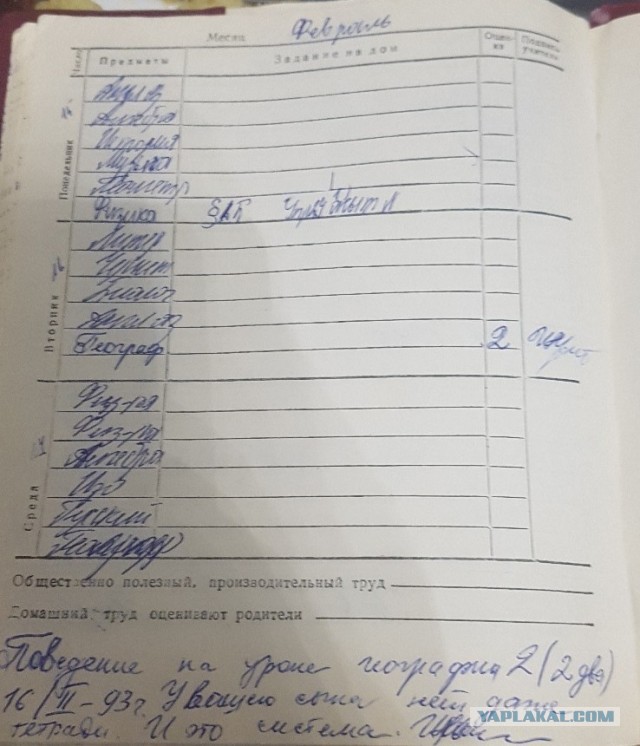 Месяц Февраль
Число Предметы Задание на дом Оцен-ка Подпись учителя
Понедельник
Англ яз
Алгебра
История
Музыка
Геометр
Физика §
Вторник
Литер
Биолог
Англ яз
Географ 2
Среда
Физ-ра
Физ-ра
Алгебра
Изо
Русский
Общественно полезный, производительный труд
Домашний труд оценивают родители
Поведение на уроке география 2 (2 два)
16/II-93г. У вашего сына нет даже
тетради. И это система.
YAPLAKAL.COM